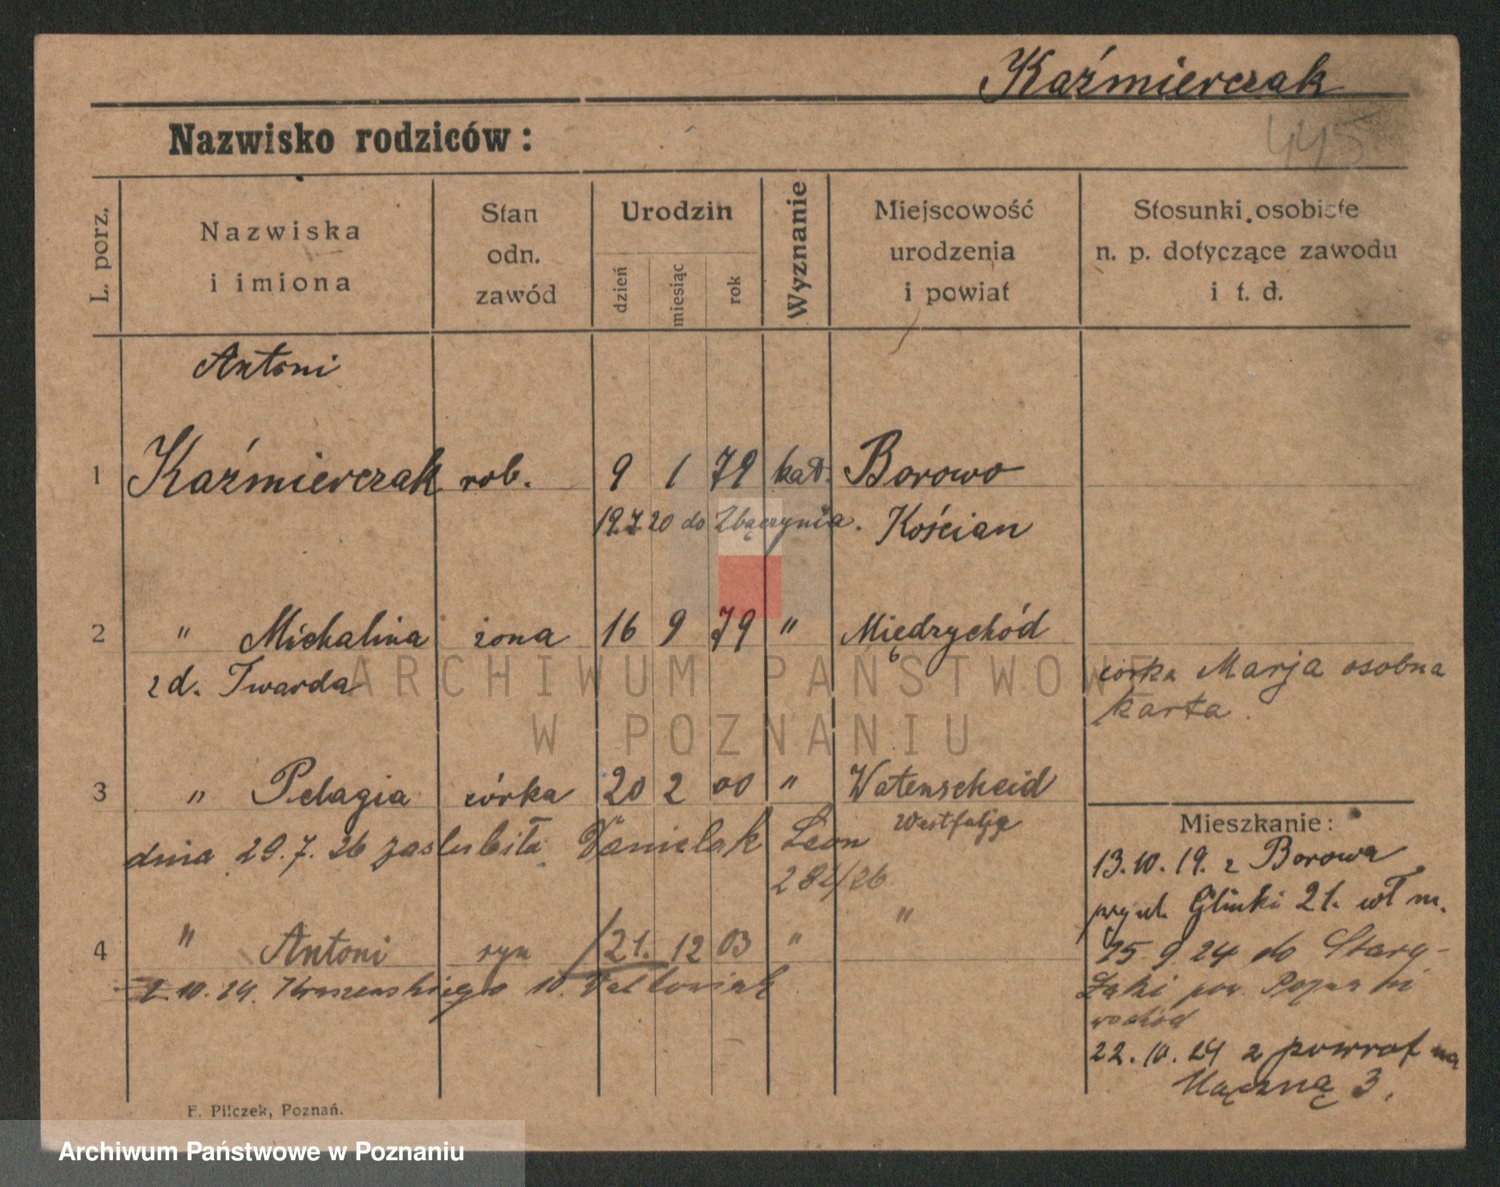 Kaźmierczak
445
Nazwisko rodziców:
L. porz.
Nazwiska
i imiona
Stan
odn.
zawód
Urodzin
dzień
miesiąc
rok
Wyznanie
Miejscowość
urodzenia
i powiat
Stosunki osobiste
n. p. dotyczące zawodu
i t. d.
Antoni
1 Kaźmierczak rob. 9 1 79 kat. Borowo
19.7.20 do Zbączynia. Kościan
2 " Michalina żona 16 9 79 " Międzychód
z d. Twarda
córka Marja osobna
karta.
3 " Pelagia córka 20 2 00 " Watenscheid
Westfalja
dnia 29.7.26 zaslubiła Danielak Leon
284/26
4 " Antoni syn 21. 12 03 " "
10. 24. Kraszewskiego 10.
Mieszkanie:
13.10.19. z Borowa
Glinki 21.
25.9.24 do Staro-
łęki pow. Poznański
wschód
22.10.24 z powrot na
Mączną 3.
F. Pilczek, Poznań.
ARCHIWUM PAŃSTWOWE
W POZNANIU
Archiwum Państwowe w Poznaniu